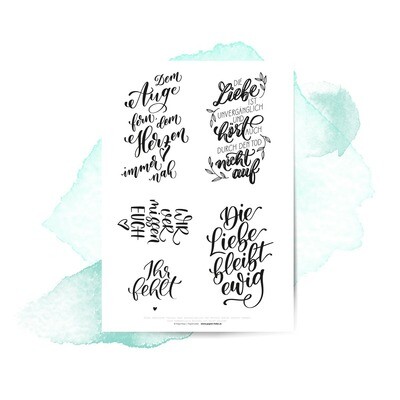 Dem
Auge
fern dem
Herzen
immer
nah
DIE
Liebe
IST
UNVERGÄNGLICH
UND
hört AUCH
DURCH DEN TOD
nicht
auf
WIR
ver
missen
EUCH
Die
Liebe
bleibt
ewig
Ihr
fehlt